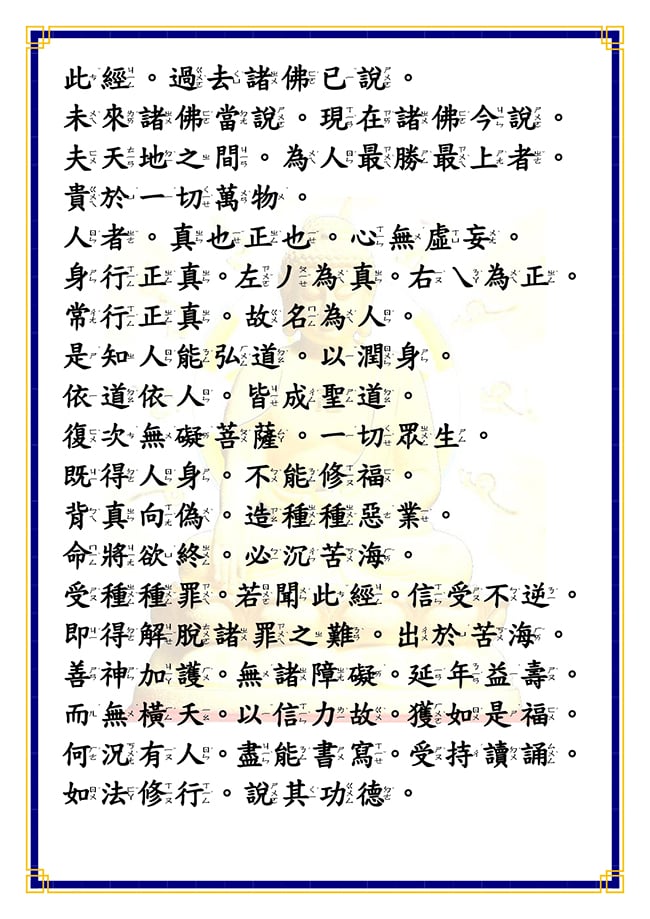 此經。過去諸佛已說。
未來諸佛當說。現在諸佛今說。
夫天地之間。為人最勝最上者。
貴於一切萬物。
人者。真也正也。心無虛妄。
身行正真。左丿為真。右乀為正。
常行正真。故名為人。
是知人能弘道。以潤身。
依道依人。皆成聖道。
復次無礙菩薩。一切眾生。
既得人身。不能修福。
背真向偽。造種種惡業。
命將欲終。必沉苦海。
受種種罪。若聞此經。信受不逆。
即得解脫諸罪之難。出於苦海。
善神加護。無諸障礙。延年益壽。
而無橫夭。以信力故。獲如是福。
何況有人。盡能書寫。受持讀誦。
如法修行。說其功德。